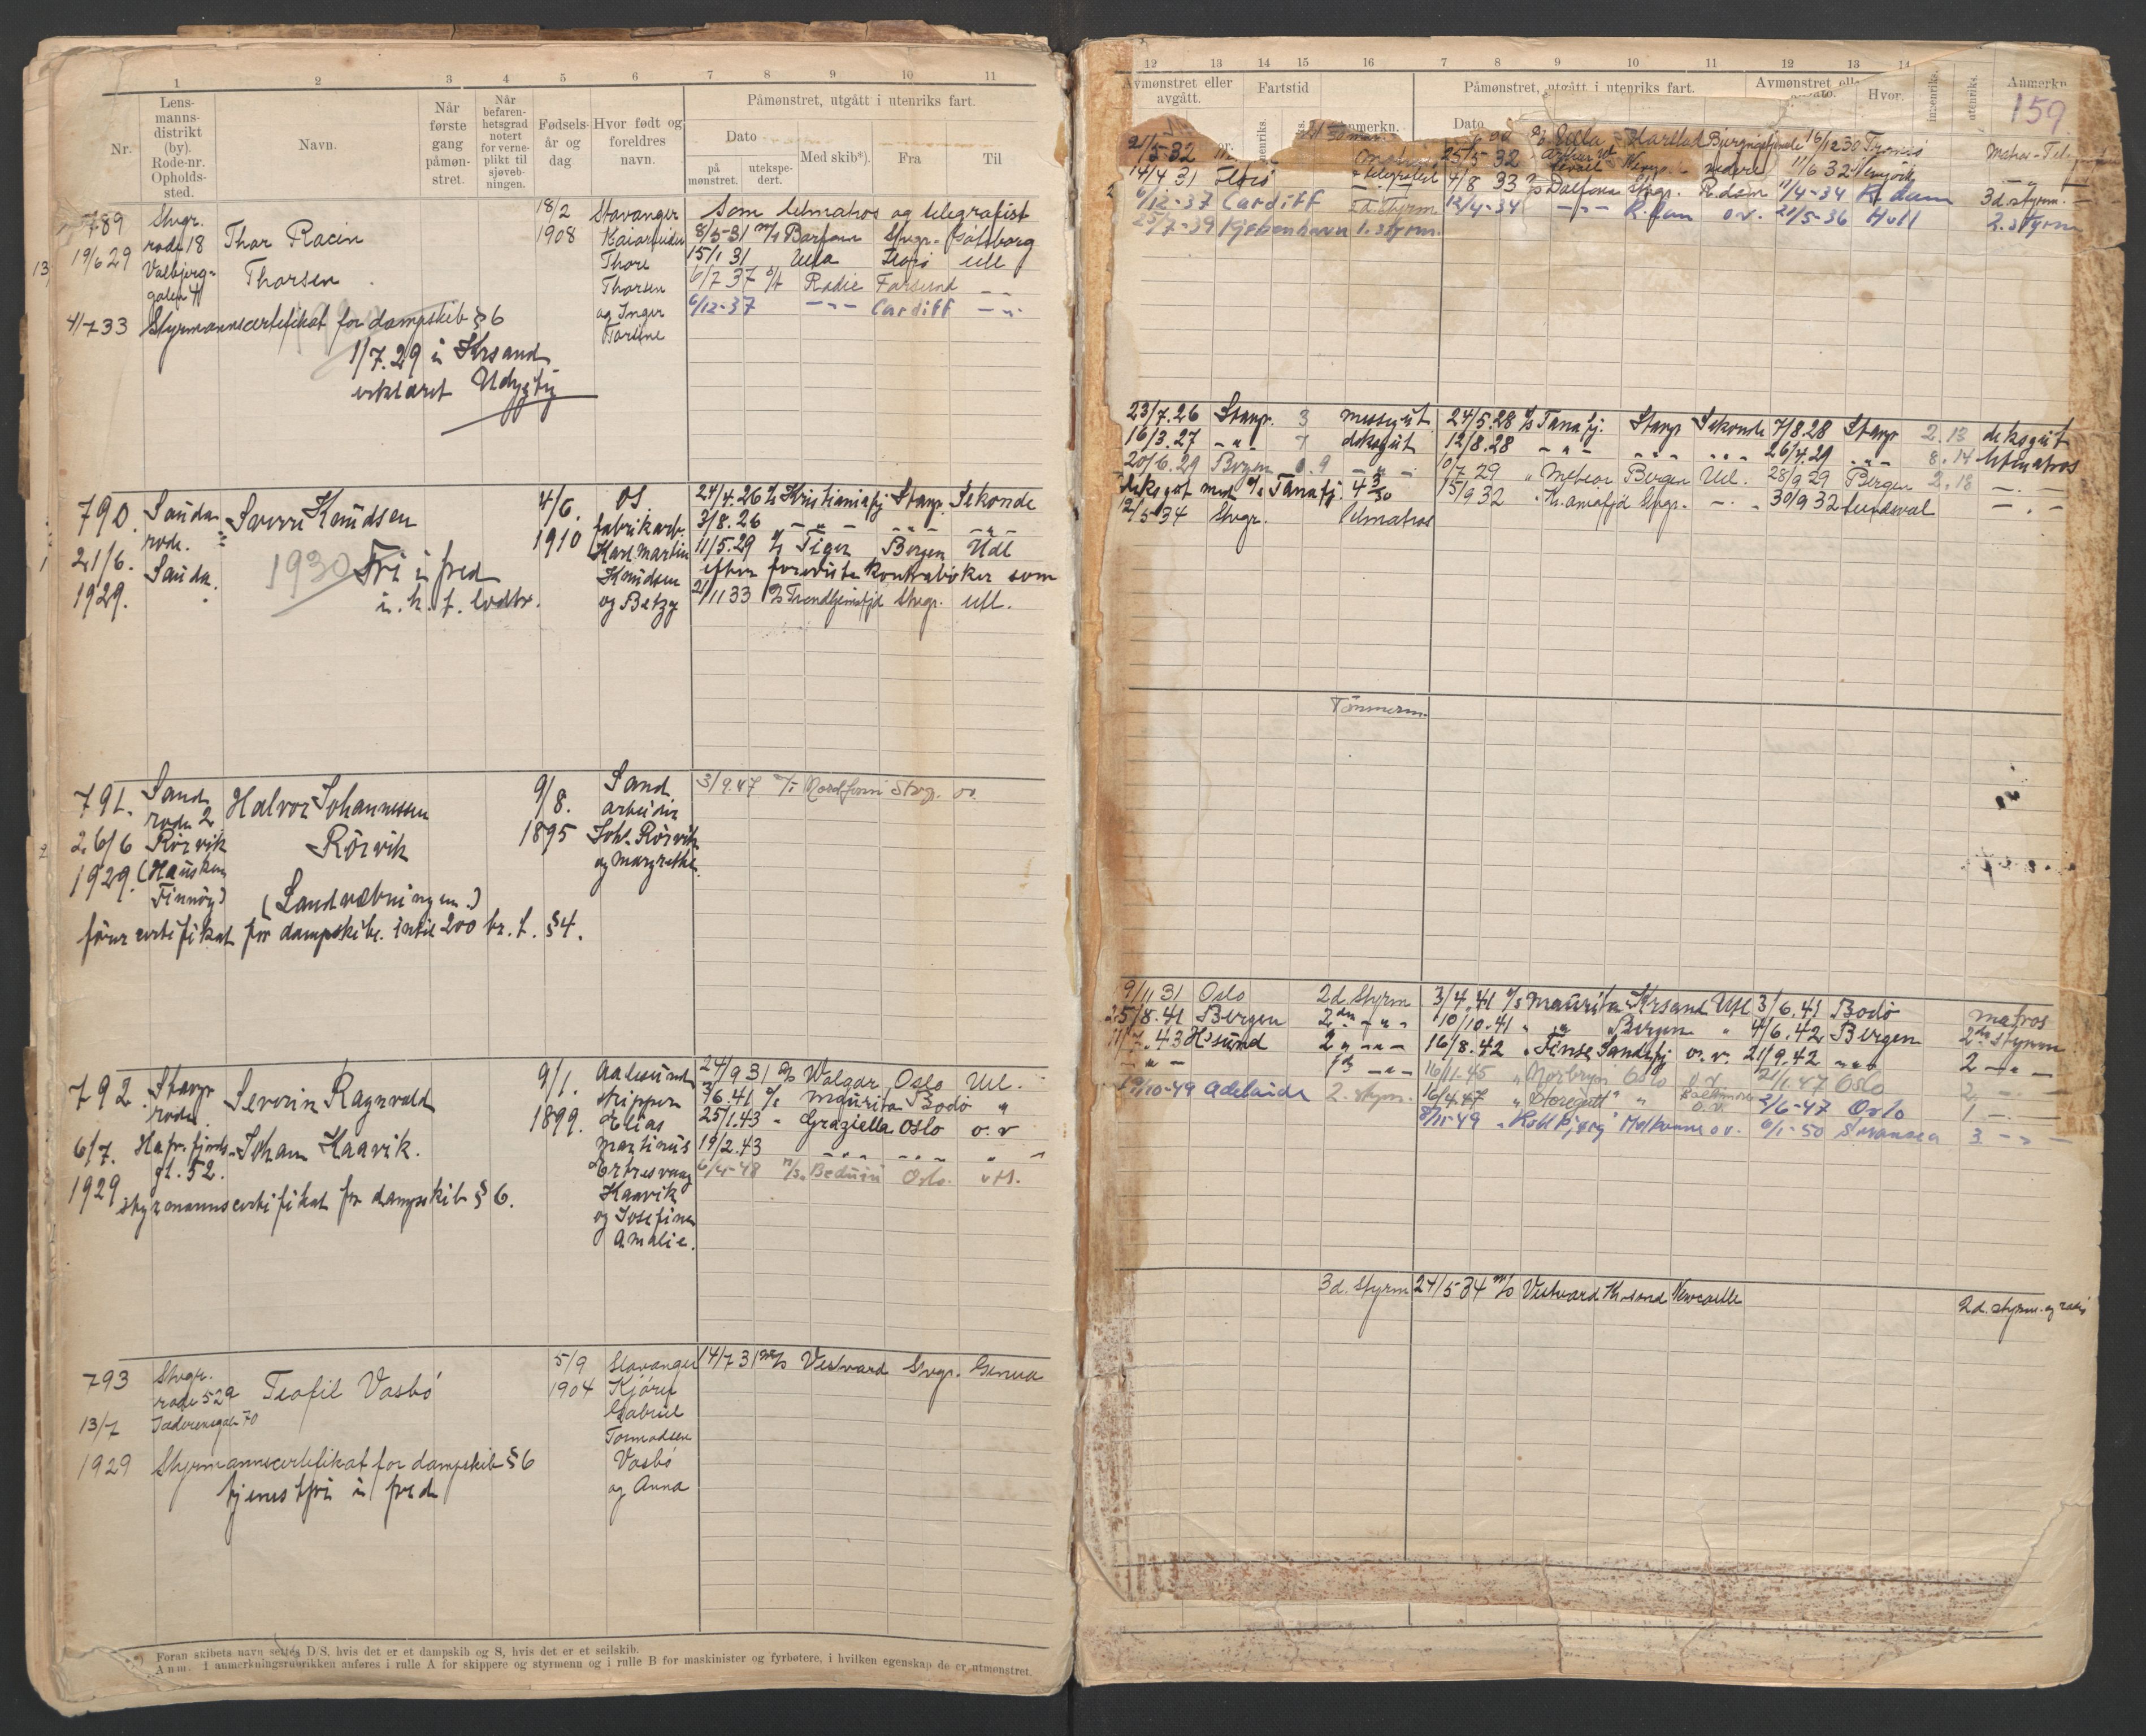 1 2 3 4 5 6 7 8 9 10 11
Nr.
Lens-
manns-
distrikt
(by).
Rode-nr.
Opholds-
sted.
Navn.
Når
første
gang
påmøn-
stret.
Når
befaren-
hetsgrad
notert
for verne-
plikt til
sjøveb-
ningen.
Fødsels-
år og
dag
Hvor født og
foreldres
navn.
Påmønstret, utgått i utenriks fart.
Dato
på
mønstret.
utekspe-
dert.
Med skib*).
Fra
Til
789
19/6 29
Stvgr.
rode 18
Valbjerg-
gaten 4
Thor Racin
Thorsen
18/2
1908
Stavanger
Thore
Thorsen
og Inger
Torine
Som letmatros og telegrafist
8/5-31 m/s Barfonn Stvgr. Gøtborg
15/1 31 Ulla Florø utl
6/7 37 Radie Farsund
6/12-37 -"- Cardiff -"-
4/7 33 Styrmannscertifikat for dampskib § 6
1/7.29 i Krsand
erklæret Udygtig
790.
21/6.
1929.
Sauda
rode.
Sauda.
Sverre Knudsen
1930 Fri i fred
4/6.
1910
OS.
fabrikarb.
Karl Martin
Knudsen
og Betzy
24/4.26 D/s Kristianiafj Stavgr. Sekonde
3/8.26 -"- -"- -"-
11/5.29 D/s Tiger Bergen Utl
efter foreviste kontrabøker som
2/11 33 D/s Trondhjemsfjd Stvgr. utl.
791.
26/6
1929.
Sand
rode 2
Rörvik
(Hausken
Finnöy)
Halvor Johannessen
Rörvik
(Landvæbningen.)
9/8.
1895
Sand
arbeider
Joh. Rörvik
og Margrethe
3/9.47 m/s Nordfonn Stvgr. ov.
förercertifikat for dampskibe. intil 200 br. t. §4.
792.
6/7.
1929
Stavgr
rode
Hafrsfjords-
gt. 52.
Severin Ragnvald
Johan Kaavik.
9/1.
1899.
Aalesund
skipper
Elias
Martinus
Ertresvaag
Kaavik
og Josefine
Amalie.
24/9 31 D/s Walgar Oslo Utl.
3/6.41 D/s Maurita Bodö "
25/1.43 " Graziella Oslo o.v
19/2.43 -"- -"- " "
6/4-48 m/s Beduin Oslo utl.
styrmannscertifikat for dampskib § 6.
793
13/7
1929
Stvgr.
rode 529
Jæderensgate 70
Teofil Vasbö
5/9
1904
Stavanger
Gabriel
Tormodsen
Vasbö
og Anna
14/7 31 m/s Vestvard Stvgr. Genua
Styrmannscertifikat for dampskib § 6
tjenestfri i fred
*) Foran skibets navn settes D/S, hvis det er et dampskib og S, hvis det er et seilskib.
Anm. I anmerkningsrubrikken anføres i rulle A for skippere og styrmenn og i rulle B for maskinister og fyrbøtere, i hvilken egenskap de er utmønstret.
12 13 14 15 16 7 8 9 10 11 12 13 14
Avmønstret eller
avgått.
Fartstid
Anmerkn.
Påmønstret, utgått i utenriks fart.
Dato
Avmønstret
Hvor.
innenriks.
utenriks.
Anmerkn
159
21/5-32
25/5-32
11/6 32
14/4 31 Florø telegrafist 4/8 33 D/s Dalfonn Stvgr. R.dam 11/4-34 R.dam 3d. styrm.
6/12-37 Cardiff 12/4-34 -"- R.dam o.v. 21/5-36 Hull 2. styrm
25/7-39 Kjøbenhavn 1. styrm.
23/7.26 Stavgr. 3 messegut 24/5.28 D/s Tanafj. Stavgr Sekonde 7/8.28 Stavgr 2.13 deksgut
16/3.27 -"- 7 deksgut 12/8.28 -"- -"- -"- 26/4.29 -"- 8.14 letmatros
20/6.29 Bergen 1.9 -"- 10/7 29 " Meteor Bergen Utl. 28/9 29 Bergen 2.18 -"-
deksgut med D/s Tanafj. 4 3/30 15/9 32 Stvgr. 30/9 32
12/5 34 Stvgr. letmatros
Tömmerm.
19/11 31 Oslo 2d. Styrm 3/4.41 D/s Maurita Krsand Utl 3/6.41 Bodö matros
25/8.41 Bergen 2den -"- 10/10.41 " " Bergen " 4/6.42 Bergen 2den styrm
11/7.43 H'sund 2 " -"- 16/8.42 " Finse Sandefj o.v. 21/9.42 -"- 2 -"-
-"- 16/11-45 " Norbryn Oslo o.v 2/1.47 Oslo 2. -"-
19/10-49 Adelaide 2. styrm. 16/4.47 " " Baltimore 2/6-47 Oslo 1 -"-
8/11-49 " Kollbjørg Melbourne o.v. 6/1-50 Swansea 3 -"-
3d. styrm 24/5-34 m/s Vestvard Kr.sand Newcastle 2d. styrm. og radio